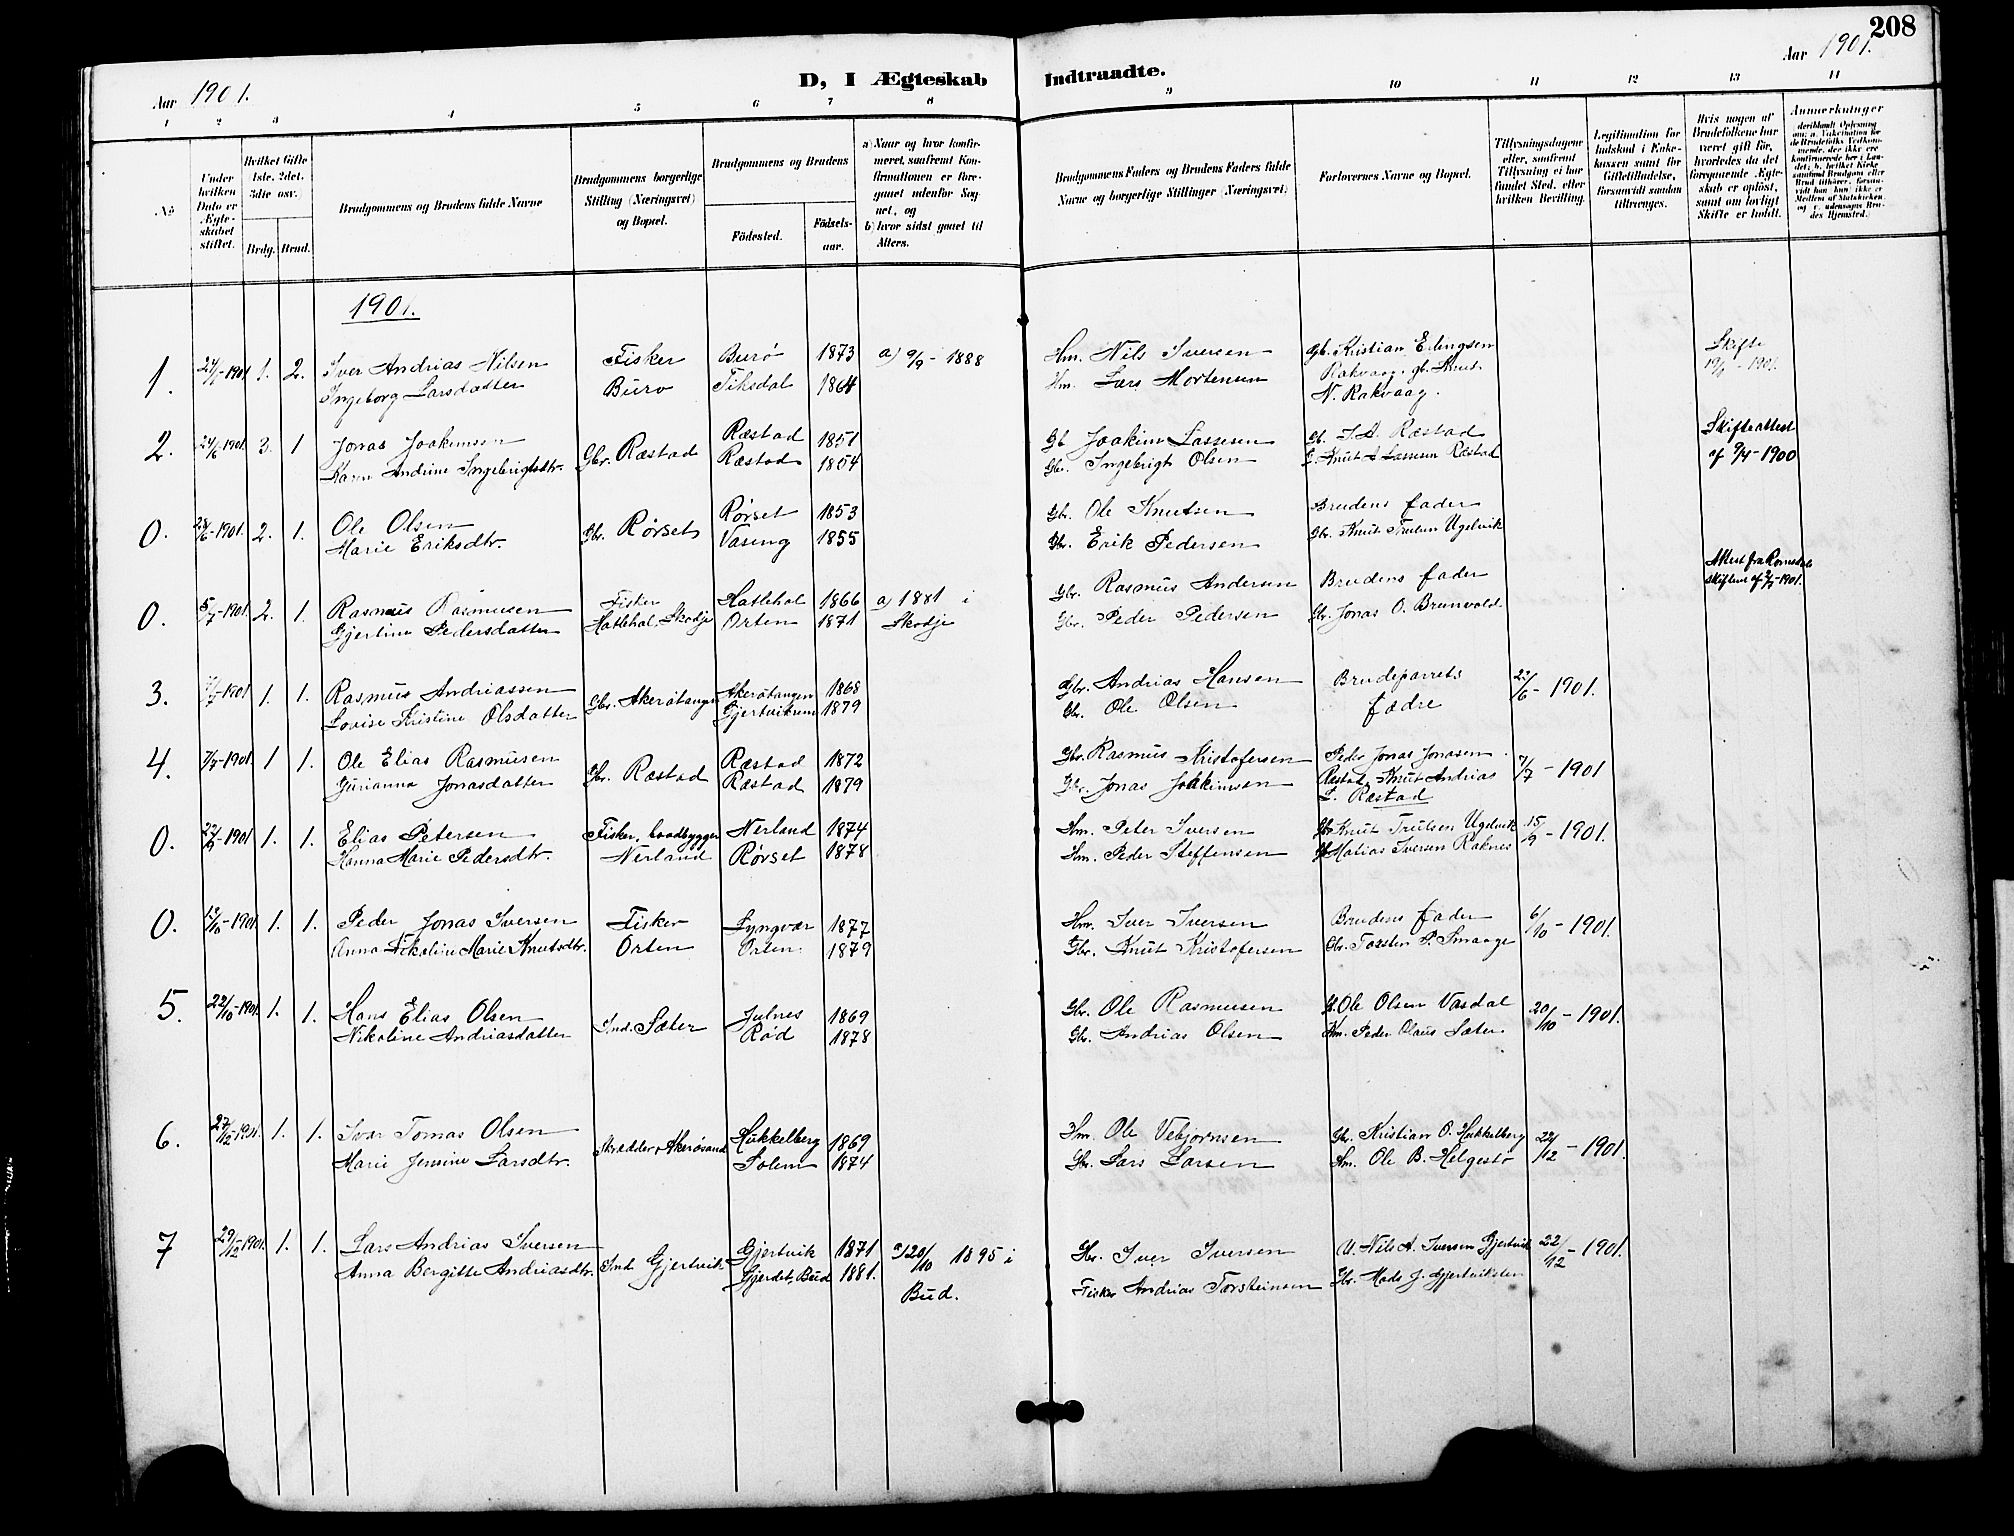 208
Aar 1901.
D, I Ægteskab Indtraadte.
Aar 1901.
1 2 3 4 5 6 7 8 9 10 11 12 13 14
No
Under hvilken Dato er Ægteskabet stiftet.
Hvilket Gifte 1ste, 2det, 3die osv.
Brdg. Brud.
Brudgommens og Brudens fulde Navne
Brudgommens borgerlige Stilling (Næringsvei) og Bopæl.
Brudgommens og Brudens
Födested. Födselsaar.
a) Naar og hvor konfirmeret, saafremt Konfirmationen er foregaaet udenfor Sognet, og
b) hvor sidst gaaet til Alters.
Brudgommens Faders og Brudens Faders fulde Navne og borgerlige Stillinger (Næringsvei).
Forlovernes Navne og Bopæl.
Tillysningsdagene eller, saafremt Tillysning ei har fundet Sted, efter hvilken Bevilling.
Legitimation for Indskud i Enkekassen samt for Giftetilladelse, forsaavidt saadan tiltrænges.
Hvis nogen af Brudefolkene har været gift för, hvorledes da det foregaaende Ægteskab er oplöst, samt om lovligt Skifte er holdt.
Anmerkninger
1901.
1. 1901 1. 2. Iver Andrias Nilsen Fisker Burö 1873 a) 9/9 - 1888 Hm. Nils Iversen Gb. Kristian Erlingsen Skifte
Ingeborg Larsdatter Burö Tiksdal 1864 Hm. Lars Mortensen Rakvaag. gb. Knut 1901.
N. Rakvaag.
2. 24/6 1901 3. 1 Jonas Joakimsen Gbr. Ræstad Ræstad 1851 Gb Joakim Lassesen Gb. I. A. Ræstad Skifteattest
Karen Andrine Ingebrigtsdtr. Ræstad 1854 Gbr. Ingebrigt Olsen Knut Lassesen Ræstad af 9/4 - 1900
0. 1901. 2. 1. Ole Olsen Gbr. Rörset Rörset 1853 Gbr. Ole Knutsen Brudens fader
Marie Eriksdtr. Vaseng 1855 Gbr. Erik Pedersen Gbr. Knut Trulsen Ugelvik
0. 5/7 - 1901 2. 1. Rasmus Rasmusen Fisker Hatlehol 1866 a) 1881 i Gbr. Rasmus Andersen Brudens fader Attest fra Romsdals
Gjertine Pedersdatter Hatlehol. Skodje Orten 1871 Skodje Gbr. Peder Pedersen Gbr. Jonas O. Brunvold. 1901.
3. 1901 1. 1. Rasmus Andriassen Gbr. Akerötangen Akerötangen 1868 Gbr. Andrias Hansen Brudeparrets 1901.
Lovise Kristine Olsdatter Gjertvikrem 1879 Gbr. Ole Olsen fædre
4. 7/7 1901 1 1. Ole Elias Rasmusen Gbr. Ræstad Ræstad 1872 Gbr. Rasmus Kristofersen Peder Jonas Jonassen 7/7 - 1901
Gurianna Jonasdatter Ræstad 1879 Gbr. Jonas Joakimsen Ræstad. Knut Andrias
L. Ræstad
0. 22/9 1901 1. 1. Elias Petersen Fisker, baadbygger Nerland 1874 Hm. Peter Iversen Gbr Knut Trulsen Ugelvik 15/9 - 1901.
Hanna Marie Pedersdtr. Nerland Rörset 1878 Hm. Peder Steffensen Matias Iversen Raknes
0. 1901. 1. 1. Peder Jonas Iversen Fisker Lyngvær 1877 Hm. Iver Iversen Brudens fader 6/10 - 1901.
Anna Nikoline Marie Knutsdtr. Orten Orten. 1879 Gbr. Knut Kristofersen Gbr. Torsten P. Smaage
5. 22/10 - 1901. 1. 1. Hans Elias Olsen Ind. Sæter Julnes 1869 Gbr. Ole Rasmusen Ole Olsen Vasdal 20/10 - 1901.
Nikoline Andriasdatter Röd 1878 Gb. Andrias Olsen Hm. Peder Olaus Sæter
6. 27/12 - 1901. 1. 1. Ivar Tomas Olsen Skrædder, Akerösund Hukkelberg 1869 Hm. Ole Vebjörnsen Gbr. Kristian O. Hukkelberg 22/12 - 1901.
Marie Jensine Larsdtr. Solem 1874 Gbr. Lars Larsen Hm. Ole B. Helgestö
7 29/12 1901. 1. 1. Lars Andrias Iversen Ind Gjertvik Gjertvik 1871 a) 20/10 1895 i Gbr. Iver Iversen Nils A. Iversen Gjertvik 22/12 - 1901.
Anna Bergitte Andriasdtr. Gjerdet, Bud 1881. Bud. Fisker Andrias Torsteinsen Gbr. Mads J. Gjertvik